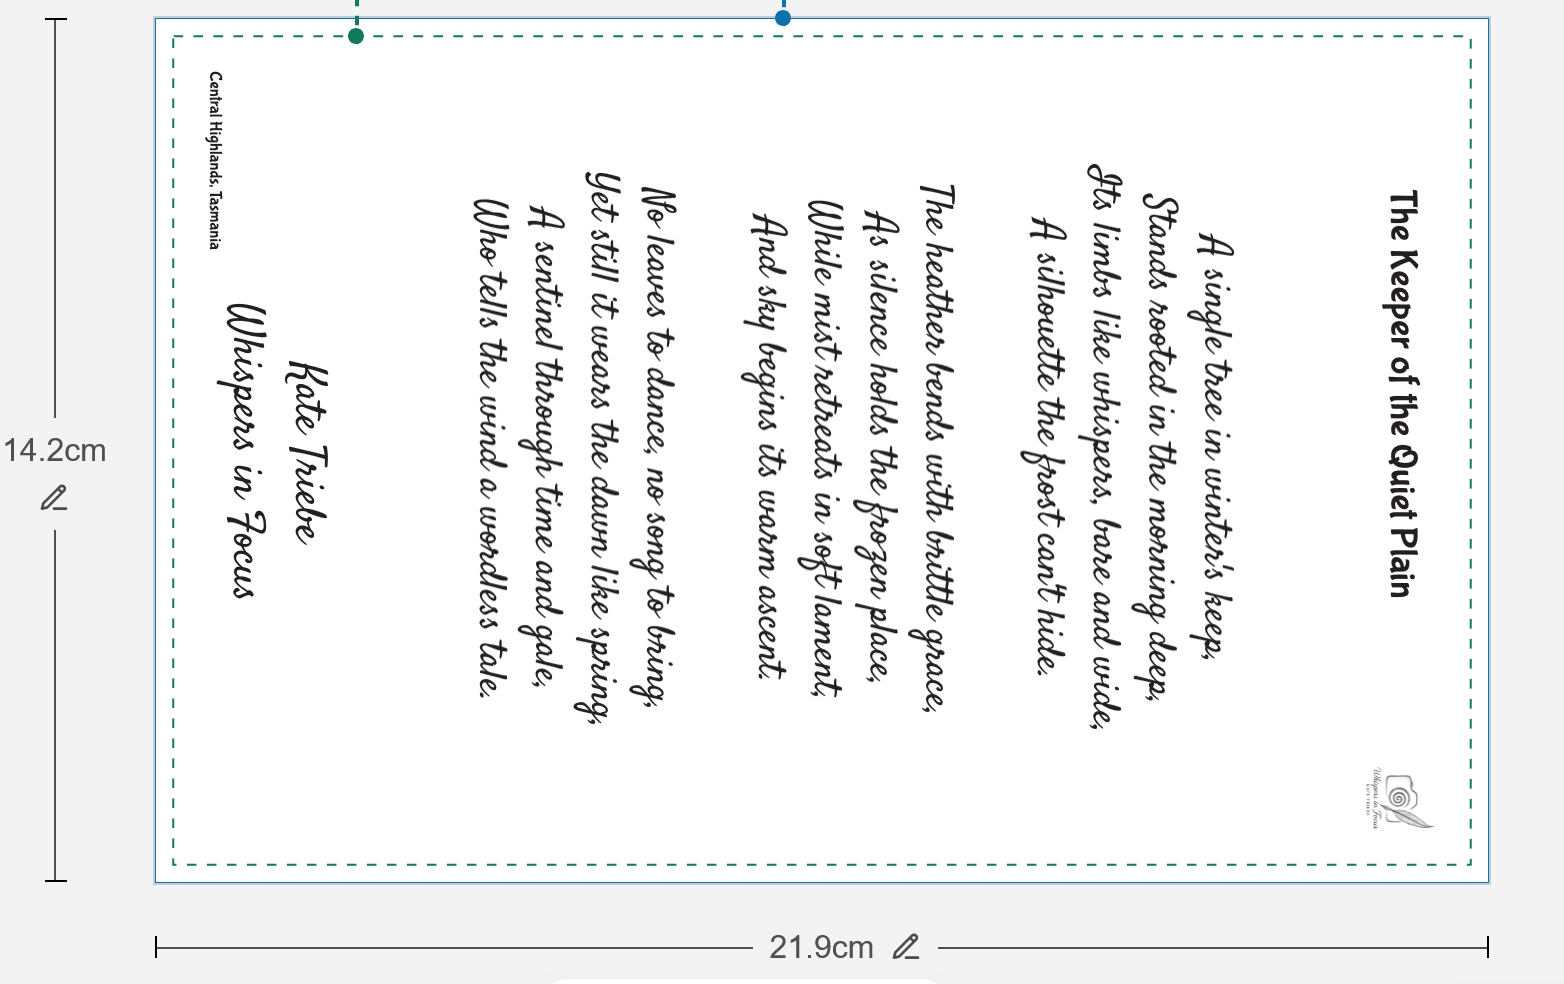 The Keeper of the Quiet Plain
A single tree in winter's keep,
Stands rooted in the morning deep,
Its limbs like whispers, bare and wide,
A silhouette the frost can't hide.
The heather bends with brittle grace,
As silence holds the frozen place,
While mist retreats in soft lament,
And sky begins its warm ascent.
No leaves to dance, no song to bring,
Yet still it wears the dawn like spring,
A sentinel through time and gale,
Who tells the wind a wordless tale.
Kate Triebe
Whispers in Focus
Central Highlands, Tasmania
Whispers in Focus
KATE TRIEBE
14.2cm
21.9cm